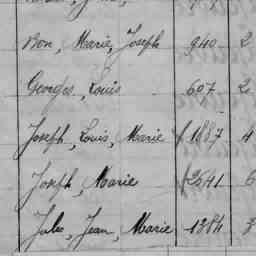 Bon, Marie, Joseph 940 2
Georges, Louis 607 2
Joseph, Louis, Marie 1887 4
Joseph, Marie 2641 6
Jules, Jean, Marie 1384 3